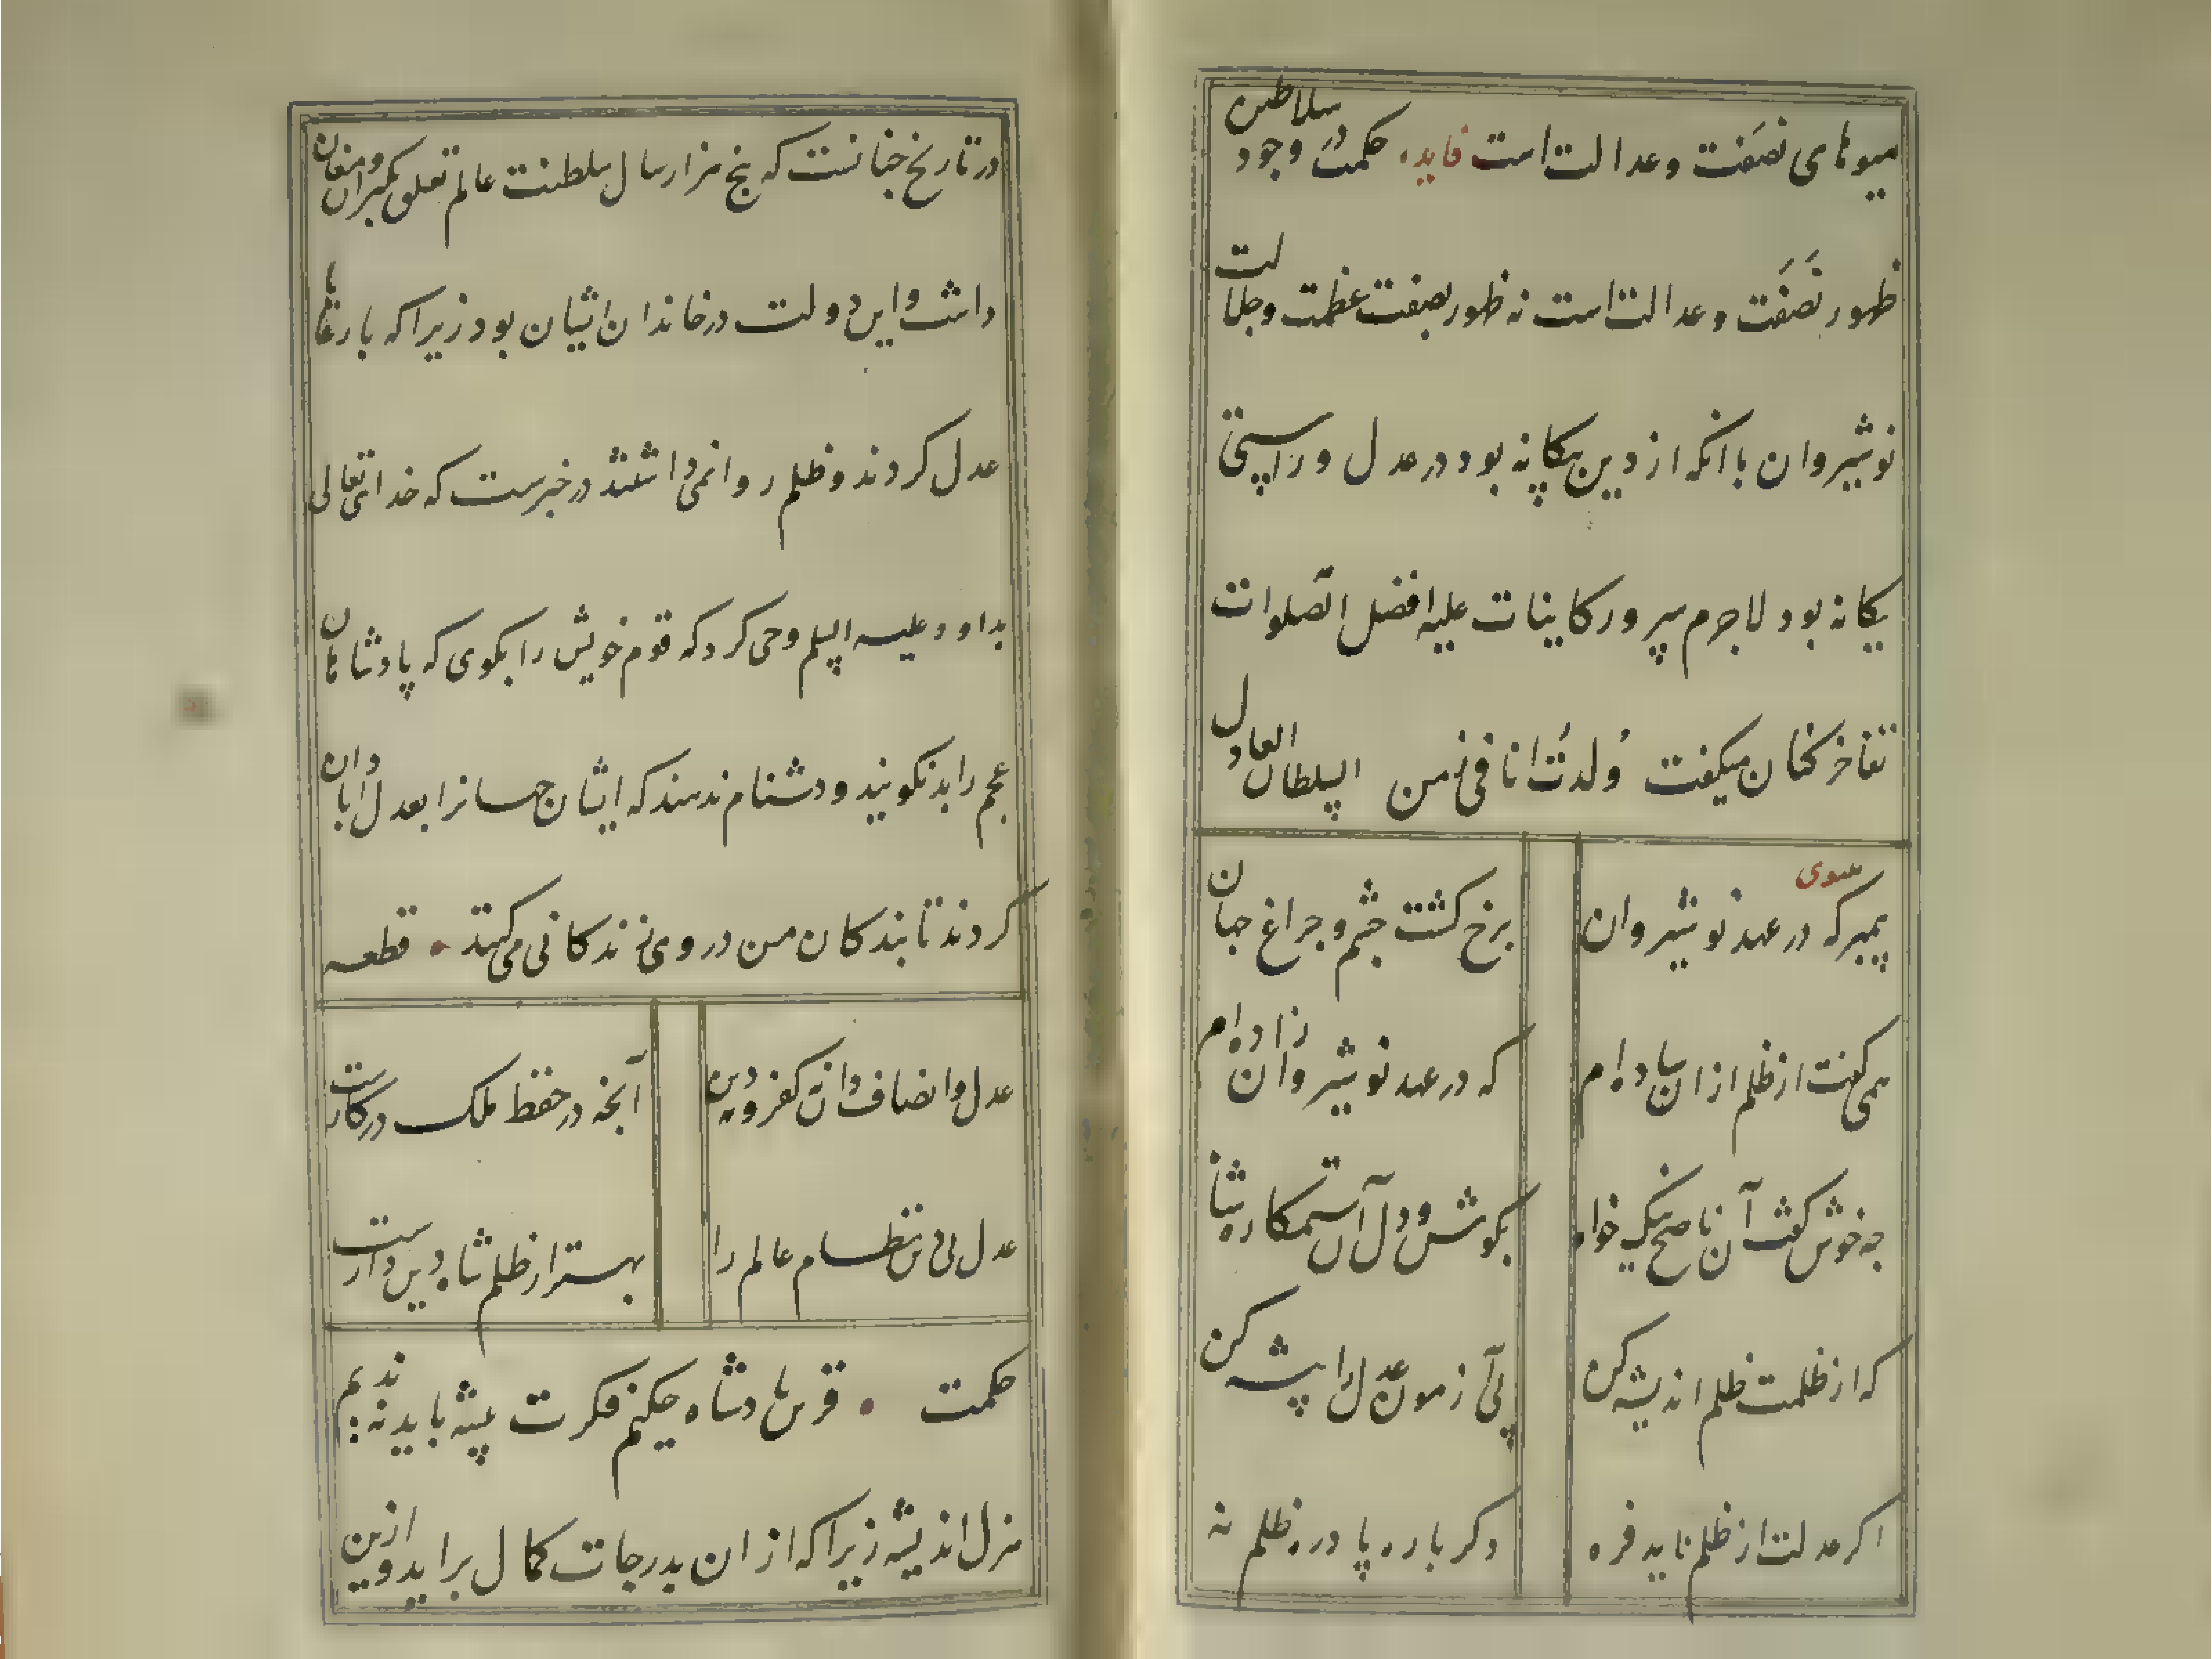 میوهای نَصَفت و عدالت است فایده حکمت در وجود سلاطین
ظهور نَصَفَت و عدالت است نه ظهور بصفت عظمت و جلالت
نوشیروان با آنکه از دین بیکانه بود در عدل و راستی
یکانه بود لاجرم سرور کاینات علیه افضل الصّلوات
تفاخر کنان میکفت وُلدتُ انا فی زمن السلطان العادل
مثنوی
پیمبر که در عهد نوشیروان
برخ کشت چشم و چراغ جهان
همی کفت از ظلم ازان ساده ام
که در عهد نوشیروان زاده ام
چه خوش کفت آن ناصح نیک خواه
بکوش دل آن ستمکاره شاه
که از ظلمت ظلم اندیشه کن
پی آزمون عدل را پیشه کن
اکر عدلت از ظلم ناید فره
دکر باره پا در ره ظلم نه
در تاریخ چنانست که پنج هزار سال سلطنت عالم تعلق بکبران و مغان
داشت و این دولت در خاندان ایشان بود زیرا که با رعایا
عدل کردند و ظلم روا نمی داشتند در خبرست که خدای تعالی
بداود علیه السلم وحی کرد که قوم خویش را بکوی که پادشاهان
عجم را بد نکویند و دشنام ندهند که ایشان جهانرا بعدل آبادان
کردند تا بندکان من در وی زندکانی می کنند قطعه
عدل و انصاف دان نه کفر و نه دین
آنچه در حفظ ملک درکارست
عدل بی دین نظام عالم را
بهتر از ظلم شاه دین دارست
حکمت قرین پادشاه حکیم فکرت پیشه باید نه ندیم
هزل اندیشه زیرا که از ان بدرجات کمال براید و ازین